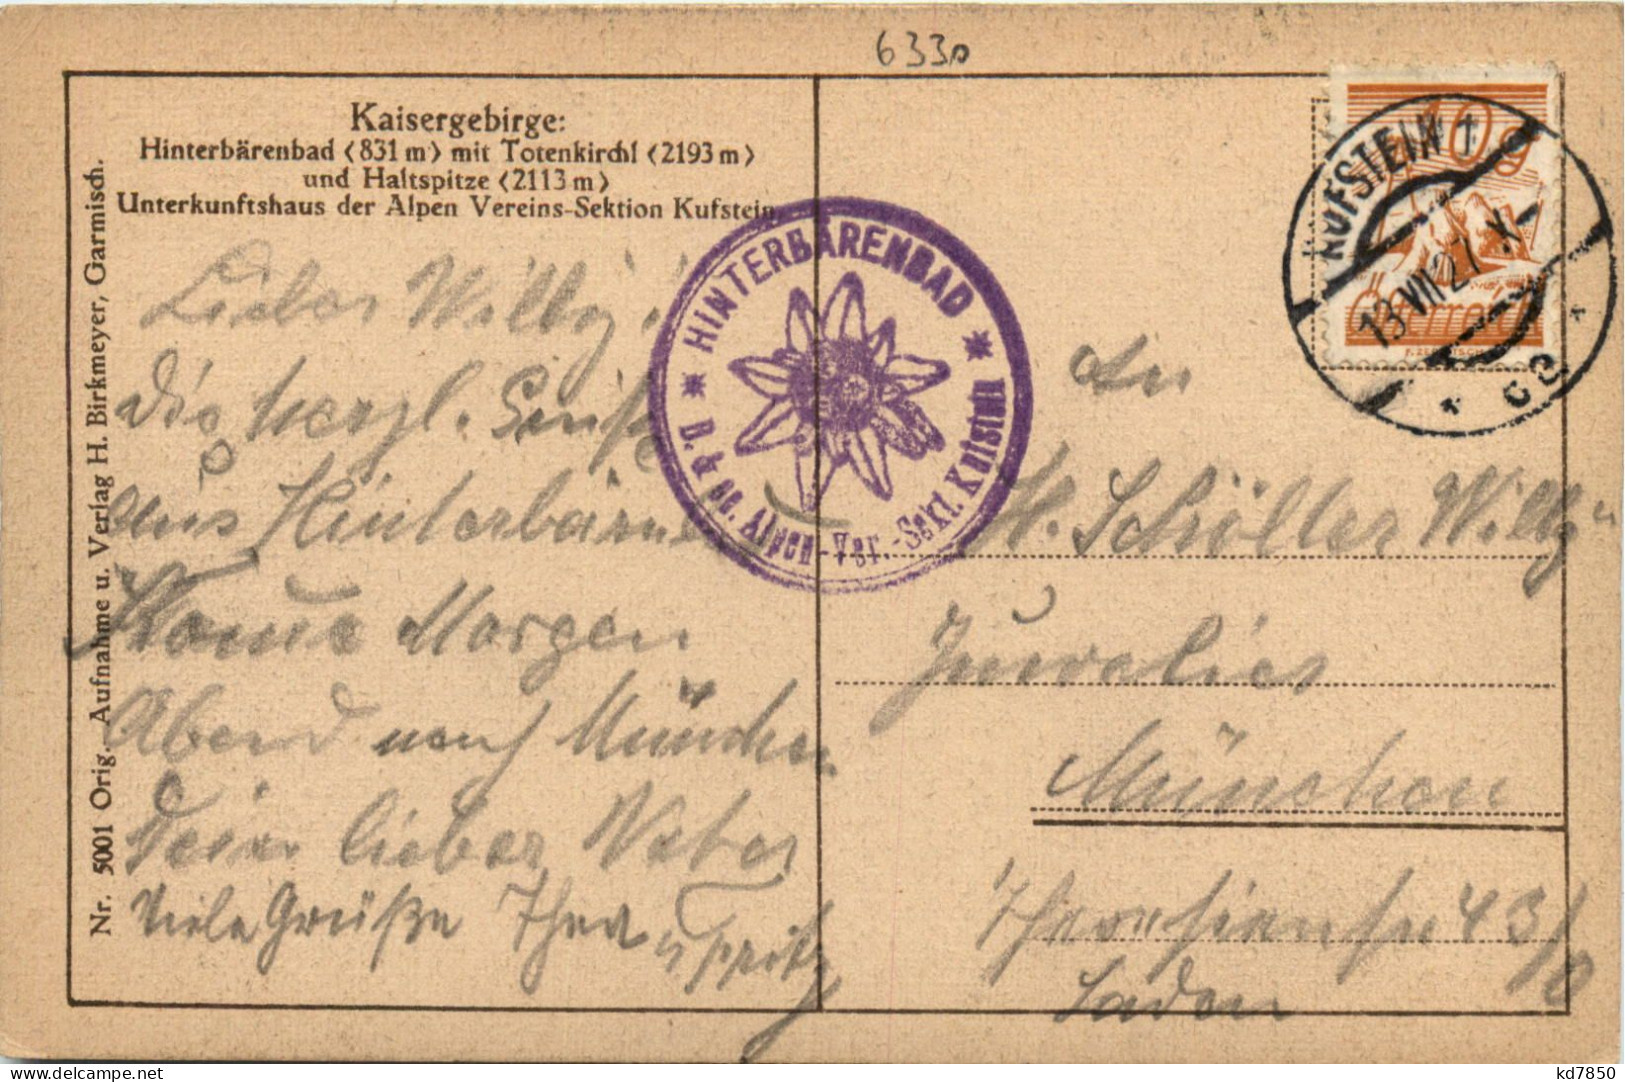 6330
Kaisergebirge:
Hinterbärenbad <831 m> mit Totenkirchl <2193 m>
und Haltspitze <2113 m>
Unterkunftshaus der Alpen Vereins-Sektion Kufstein
Nr. 5001 Orig. Aufnahme u. Verlag H. Birkmeyer, Garmisch.
Lieber Willy!
Die herzl. Grüße
aus Hinterbären
Komme Morgen
Abend nach München
Dein lieber Vater
Viele Grüße Thea
u Fritz
* HINTERBÄRENBAD *
D. & Oe. Alpen-Ver.-Sekt. Kufstein
KUFSTEIN 1
13 VII 27 X
10g
Österreich
An
H. Schöller Willy
Juwelier
München
Theresienstr 43/0
Laden
kd7850